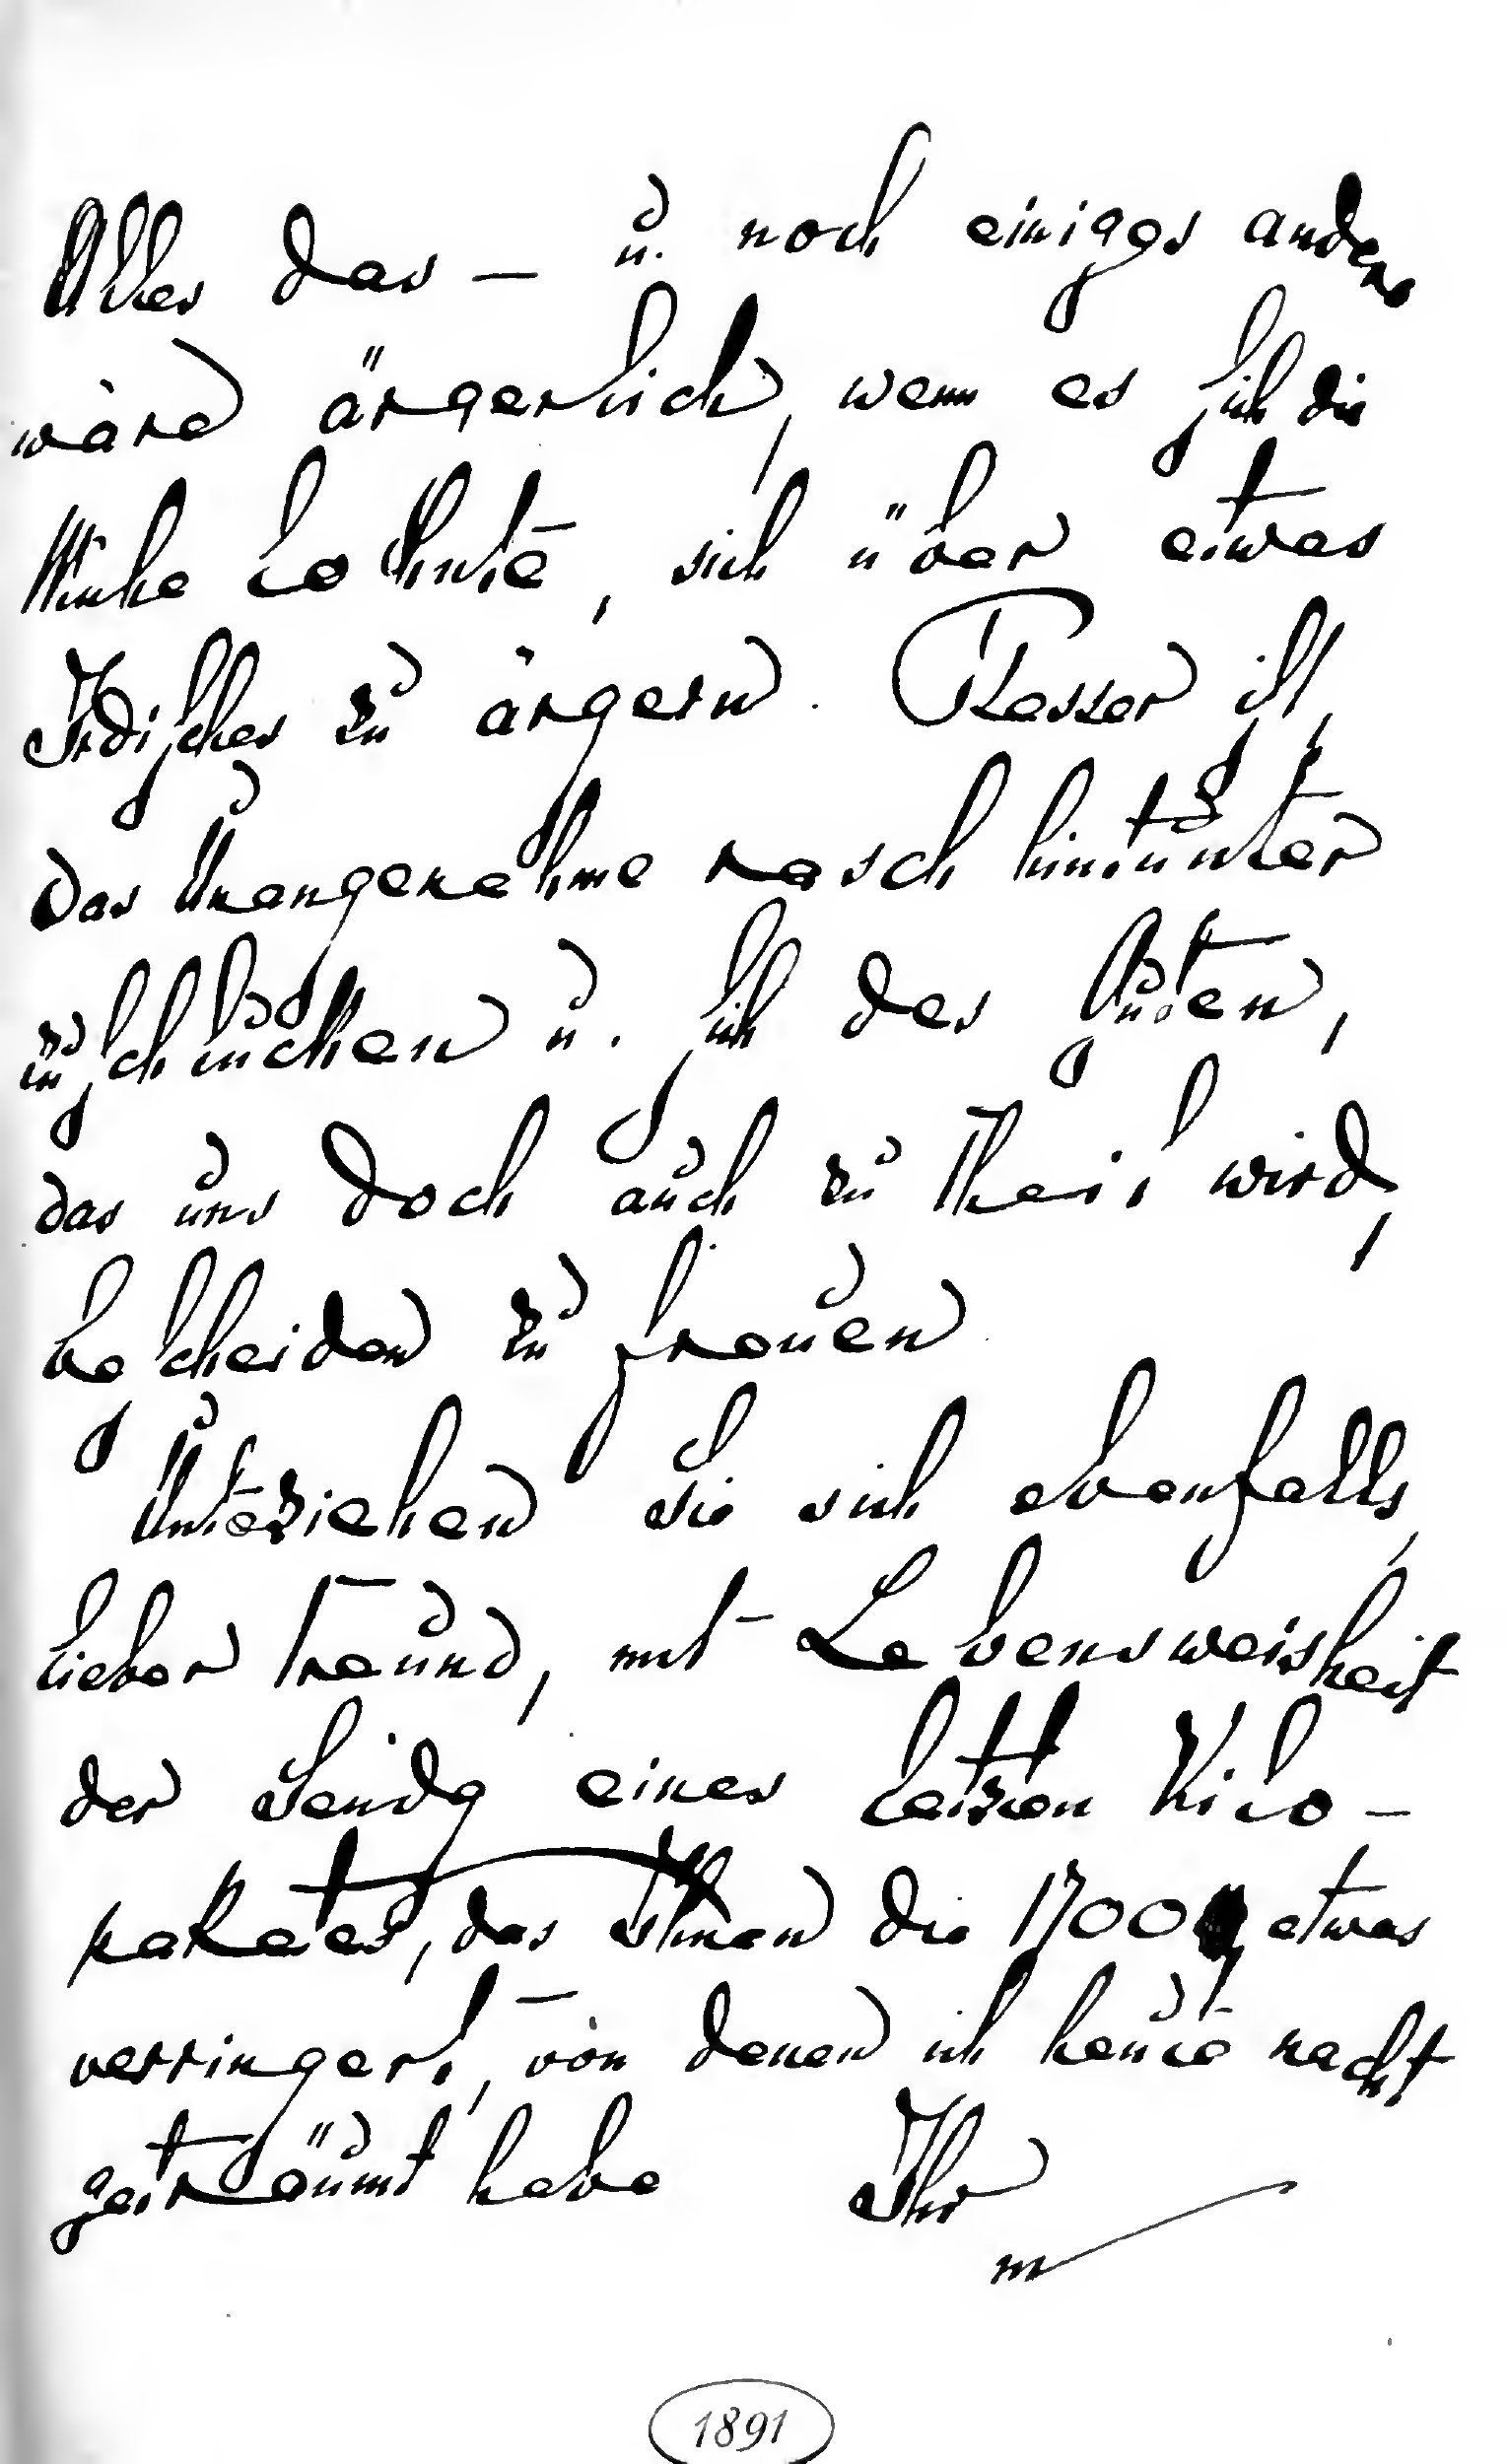 Alles das — u. noch einiges andere
wäre ärgerlich, wenn es sich die
Mühe lohnte, sich über etwas
Irdisches zu ärgern. Besser ist,
das Unangenehme rasch hinunter
zu schlucken u. sich des Guten,
das uns doch auch zu Theil wird,
bescheiden zu freuen
Unterziehen Sie sich ebenfalls,
lieber Freund, mit Lebensweisheit
der Sendg eines letzten Kilo-
paketes, das Ihnen die 1700 etwas
verringert, von denen ich heute nacht
geträumt habe Ihr
m
1891